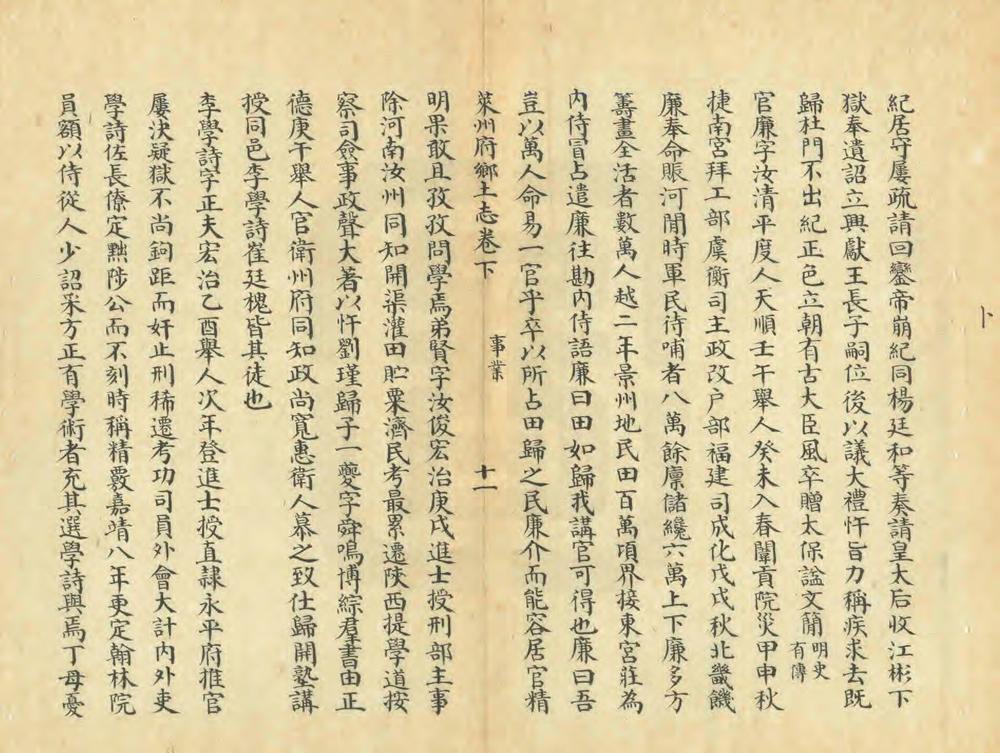 紀居守屢疏請回鑾帝崩紀同楊廷和等奏請皇太后收江彬下
獄奉遺詔立興獻王長子嗣位後以議大禮忤旨力稱疾求去既
歸杜門不出紀正色立朝有古大臣風卒贈太保諡文簡明史有傳
官廉字汝清平度人天順壬午舉人癸未入春闈貢院災甲申秋
捷南宮拜工部虞衡司主政改户部福建司成化戊戌秋北畿饑
廉奉命賑河間時軍民待哺者八萬餘廩儲纔六萬上下廉多方
籌畫全活者數萬人越二年景州地民田百萬頃界接東宮莊為
內侍冒占遣廉往勘內侍語廉曰田如歸我講官可得也廉曰吾
豈以萬人命易一官乎卒以所占田歸之民廉介而能容居官精
萊州府鄉土志卷下 事業 十一
明果敢且孜孜問學焉弟賢字汝俊宏治庚戌進士授刑部主事
除河南汝州同知開渠灌田貯粟濟民考最累遷陝西提學道按
察司僉事政聲大著以忤劉瑾歸子一夔字舜鳴博綜羣書由正
德庚午舉人官衛州府同知政尚寬惠衛人慕之致仕歸開塾講
授同邑李學詩崔廷槐皆其徒也
李學詩字正夫宏治乙酉舉人次年登進士授直隸永平府推官
屢決疑獄不尚鉤距而奸止刑稀遷考功司員外會大計內外吏
學詩佐長僚定黜陟公而不刻時稱精覈嘉靖八年更定翰林院
員額以侍從人少詔采方正有學術者充其選學詩與焉丁母憂